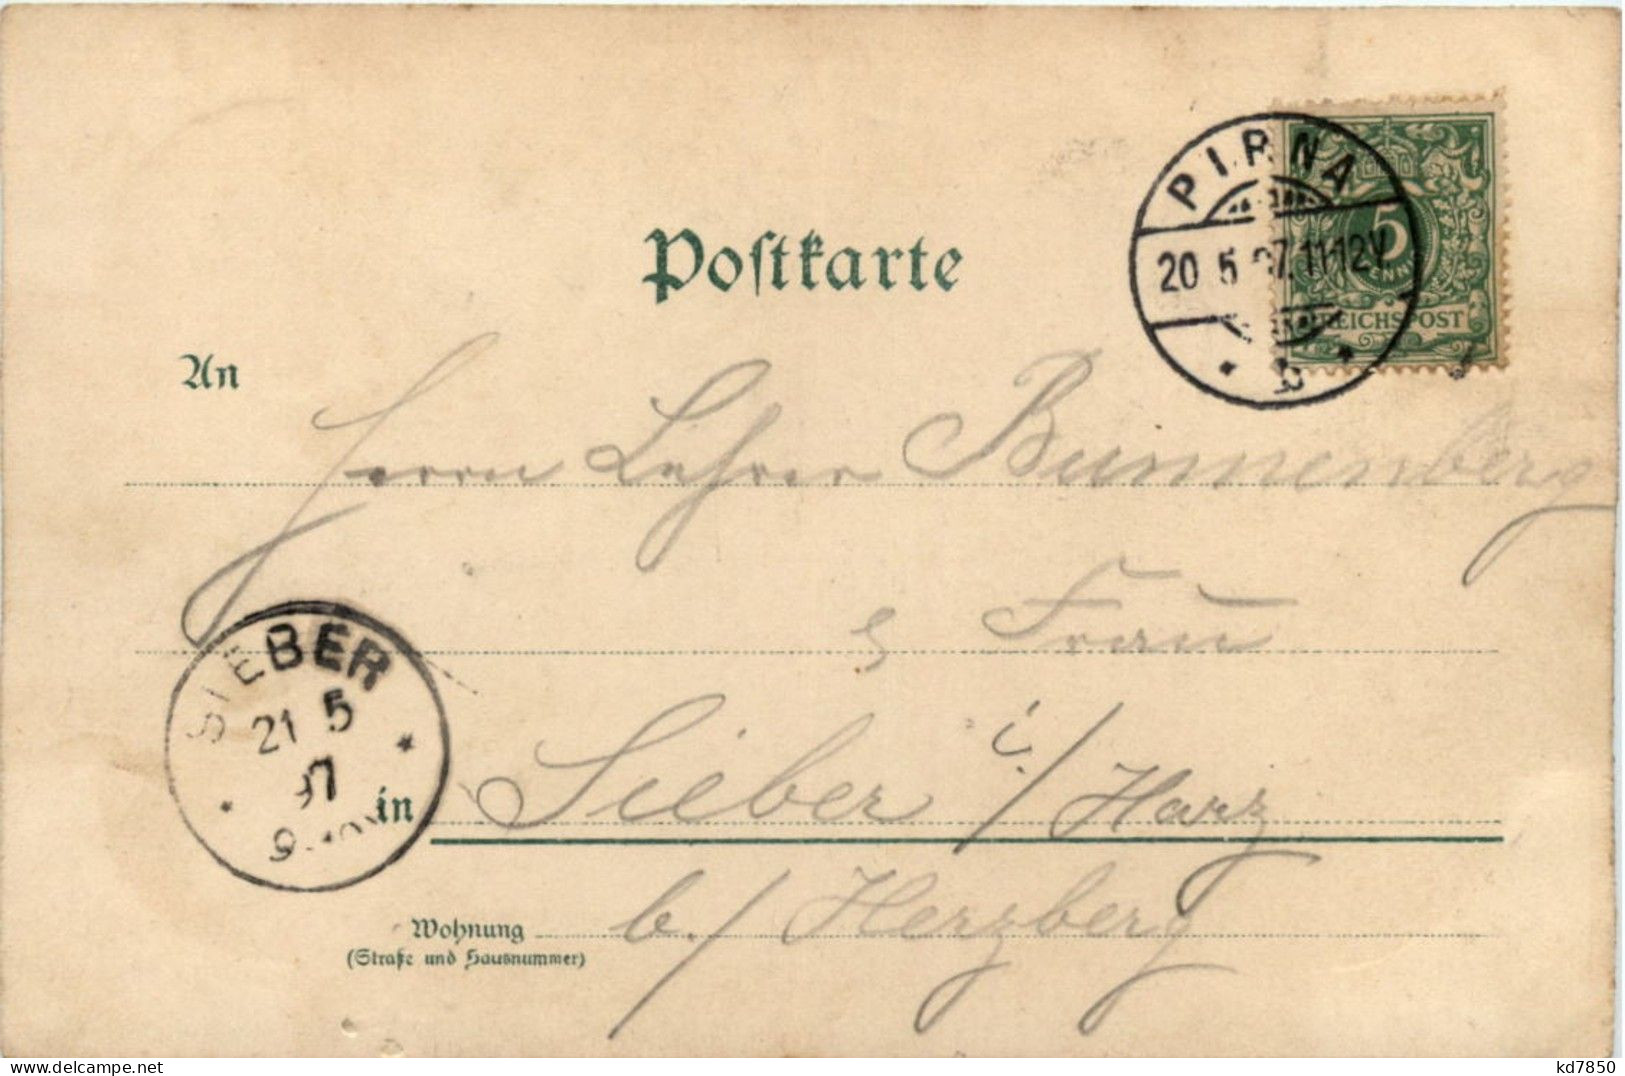 PIRNA
20 5 97. 11-12V.
b
5
REICHSPOST
Postkarte
An
Herrn Lehrer Bunnenberg
Frau
SIEBER
21 5
97
in Sieber i./Harz
Wohnung b./Herzberg
(Straße und Hausnummer)
kd7850